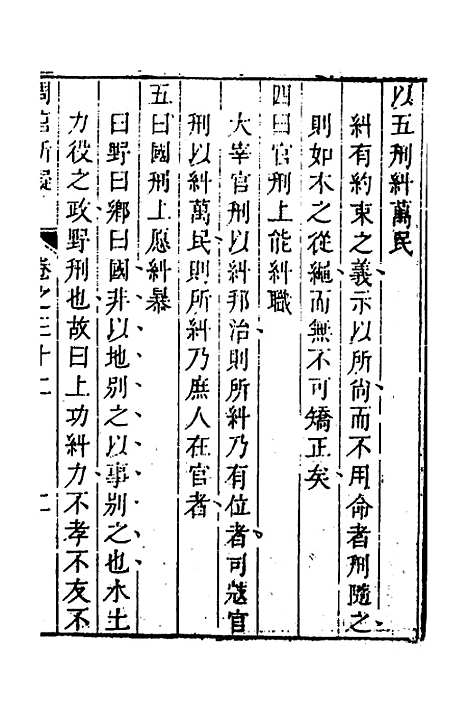 以五刑糾萬民
糾有約束之義示以所尚而不用命者刑隨之
則如木之從繩而無不可矯正矣
四曰官刑上能糾職
大宰官刑以糾邦治則所糾乃有位者司寇官
刑以糾萬民則所糾乃庶人在官者
五曰國刑上愿糾暴
曰野曰鄉曰國非以地別之以事別之也水土
力役之政野刑也故曰上功糾力不孝不友不
周官析疑
卷之三十二
二